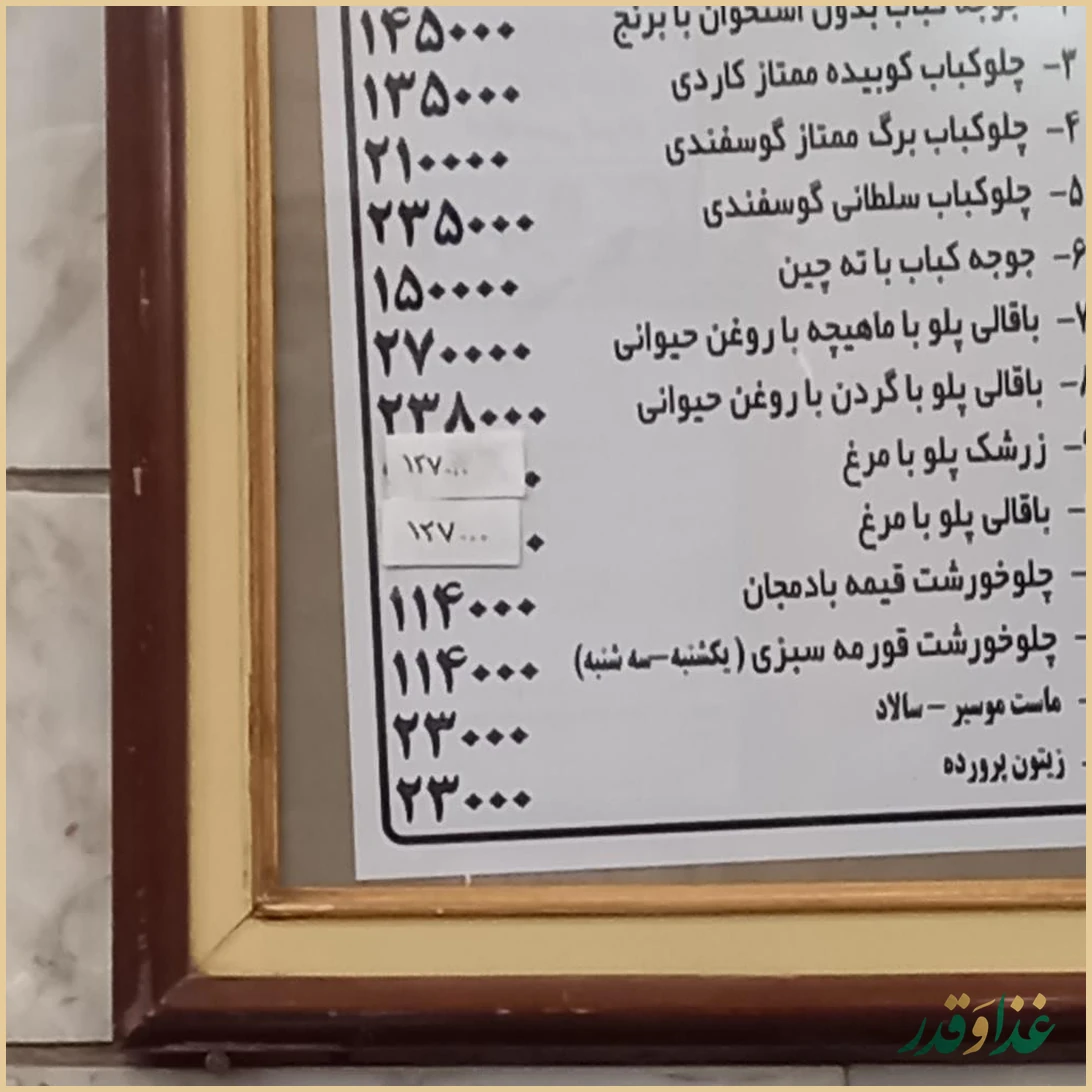 جوجه کباب بدون استخوان با برنج ۱۴۵۰۰۰
۳- چلوکباب کوبیده ممتاز کاردی ۱۳۵۰۰۰
۴- چلوکباب برگ ممتاز گوسفندی ۲۱۰۰۰۰
۵- چلوکباب سلطانی گوسفندی ۲۳۵۰۰۰
۶- جوجه کباب با ته چین ۱۵۰۰۰۰
۷- باقالی پلو با ماهیچه با روغن حیوانی ۲۷۰۰۰۰
۸- باقالی پلو با گردن با روغن حیوانی ۲۳۸۰۰۰
۹- زرشک پلو با مرغ ۱۲۷۰۰۰
- باقالی پلو با مرغ ۱۲۷۰۰۰
- چلوخورشت قیمه بادمجان ۱۱۴۰۰۰
- چلوخورشت قورمه سبزی (یکشنبه-سه شنبه) ۱۱۴۰۰۰
- ماست موسیر - سالاد ۲۳۰۰۰
- زیتون پرورده ۲۳۰۰۰
غذا و قدر